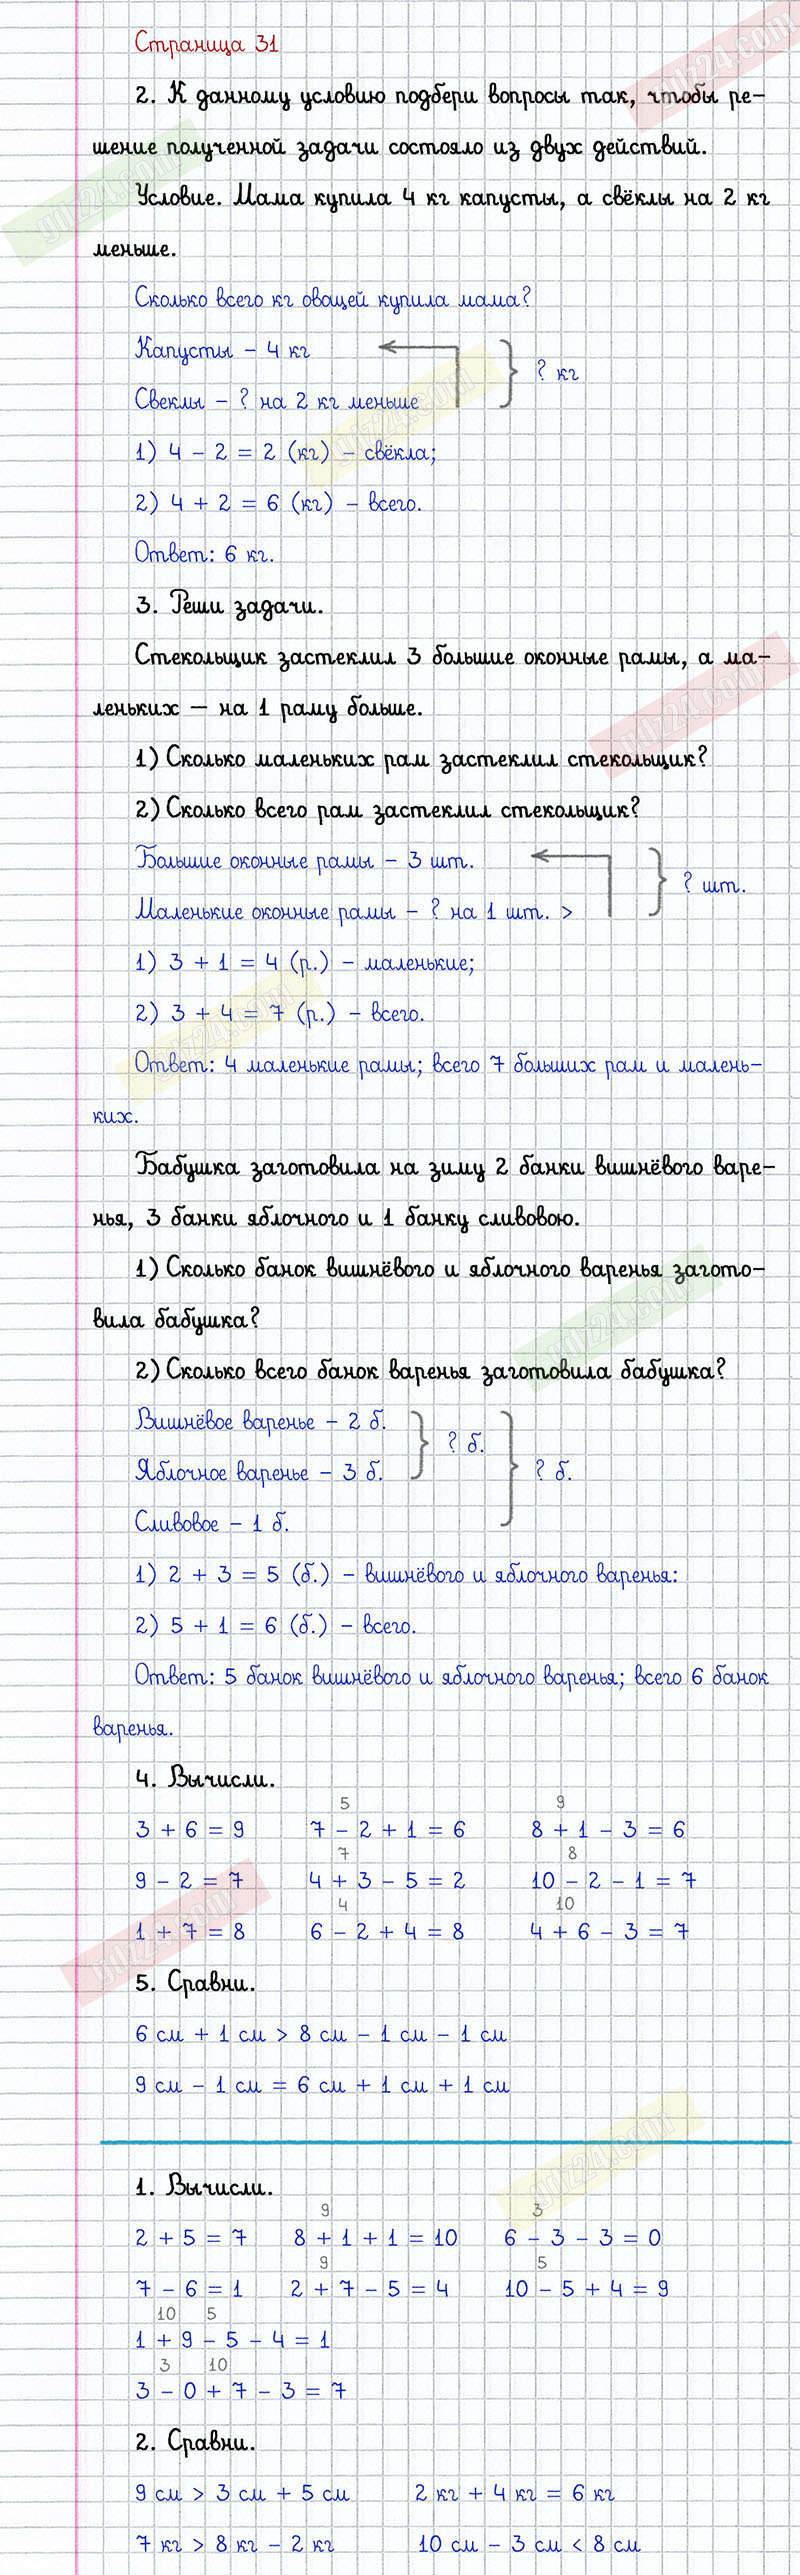 Страница 31
2. К данному условию подбери вопросы так, чтобы ре-
шение полученной задачи состояло из двух действий.
Условие. Мама купила 4 кг капусты, а свёклы на 2 кг
меньше.
Сколько всего кг овощей купила мама?
Капусты – 4 кг
? кг
Свеклы – ? на 2 кг меньше
1) 4 – 2 = 2 (кг) – свёкла;
2) 4 + 2 = 6 (кг) – всего.
Ответ: 6 кг.
3. Реши задачи.
Стекольщик застеклил 3 большие оконные рамы, а ма-
леньких — на 1 раму больше.
1) Сколько маленьких рам застеклил стекольщик?
2) Сколько всего рам застеклил стекольщик?
Большие оконные рамы – 3 шт.
? шт.
Маленькие оконные рамы – ? на 1 шт. >
1) 3 + 1 = 4 (р.) – маленькие;
2) 3 + 4 = 7 (р.) – всего.
Ответ: 4 маленькие рамы; всего 7 больших рам и малень-
ких.
Бабушка заготовила на зиму 2 банки вишнёвого варе-
нья, 3 банки яблочного и 1 банку сливовою.
1) Сколько банок вишнёвого и яблочного варенья загото-
вила бабушка?
2) Сколько всего банок варенья заготовила бабушка?
Вишнёвое варенье – 2 б.
? б.
Яблочное варенье – 3 б.
? б.
Сливовое – 1 б.
1) 2 + 3 = 5 (б.) – вишнёвого и яблочного варенья:
2) 5 + 1 = 6 (б.) – всего.
Ответ: 5 банок вишнёвого и яблочного варенья; всего 6 банок
варенья.
4. Вычисли.
5 9
3 + 6 = 9 7 – 2 + 1 = 6 8 + 1 – 3 = 6
7 8
9 – 2 = 7 4 + 3 – 5 = 2 10 – 2 – 1 = 7
4 10
1 + 7 = 8 6 – 2 + 4 = 8 4 + 6 – 3 = 7
5. Сравни.
6 см + 1 см > 8 см – 1 см – 1 см
9 см – 1 см = 6 см + 1 см + 1 см
1. Вычисли.
9 3
2 + 5 = 7 8 + 1 + 1 = 10 6 – 3 – 3 = 0
9 5
7 – 6 = 1 2 + 7 – 5 = 4 10 – 5 + 4 = 9
10 5
1 + 9 – 5 – 4 = 1
3 10
3 – 0 + 7 – 3 = 7
2. Сравни.
9 см > 3 см + 5 см 2 кг + 4 кг = 6 кг
7 кг > 8 кг – 2 кг 10 см – 3 см < 8 см
gdz24.com
gdz24.com
gdz24.com
gdz24.com
gdz24.com
gdz24.com
gdz24.com
gdz24.com